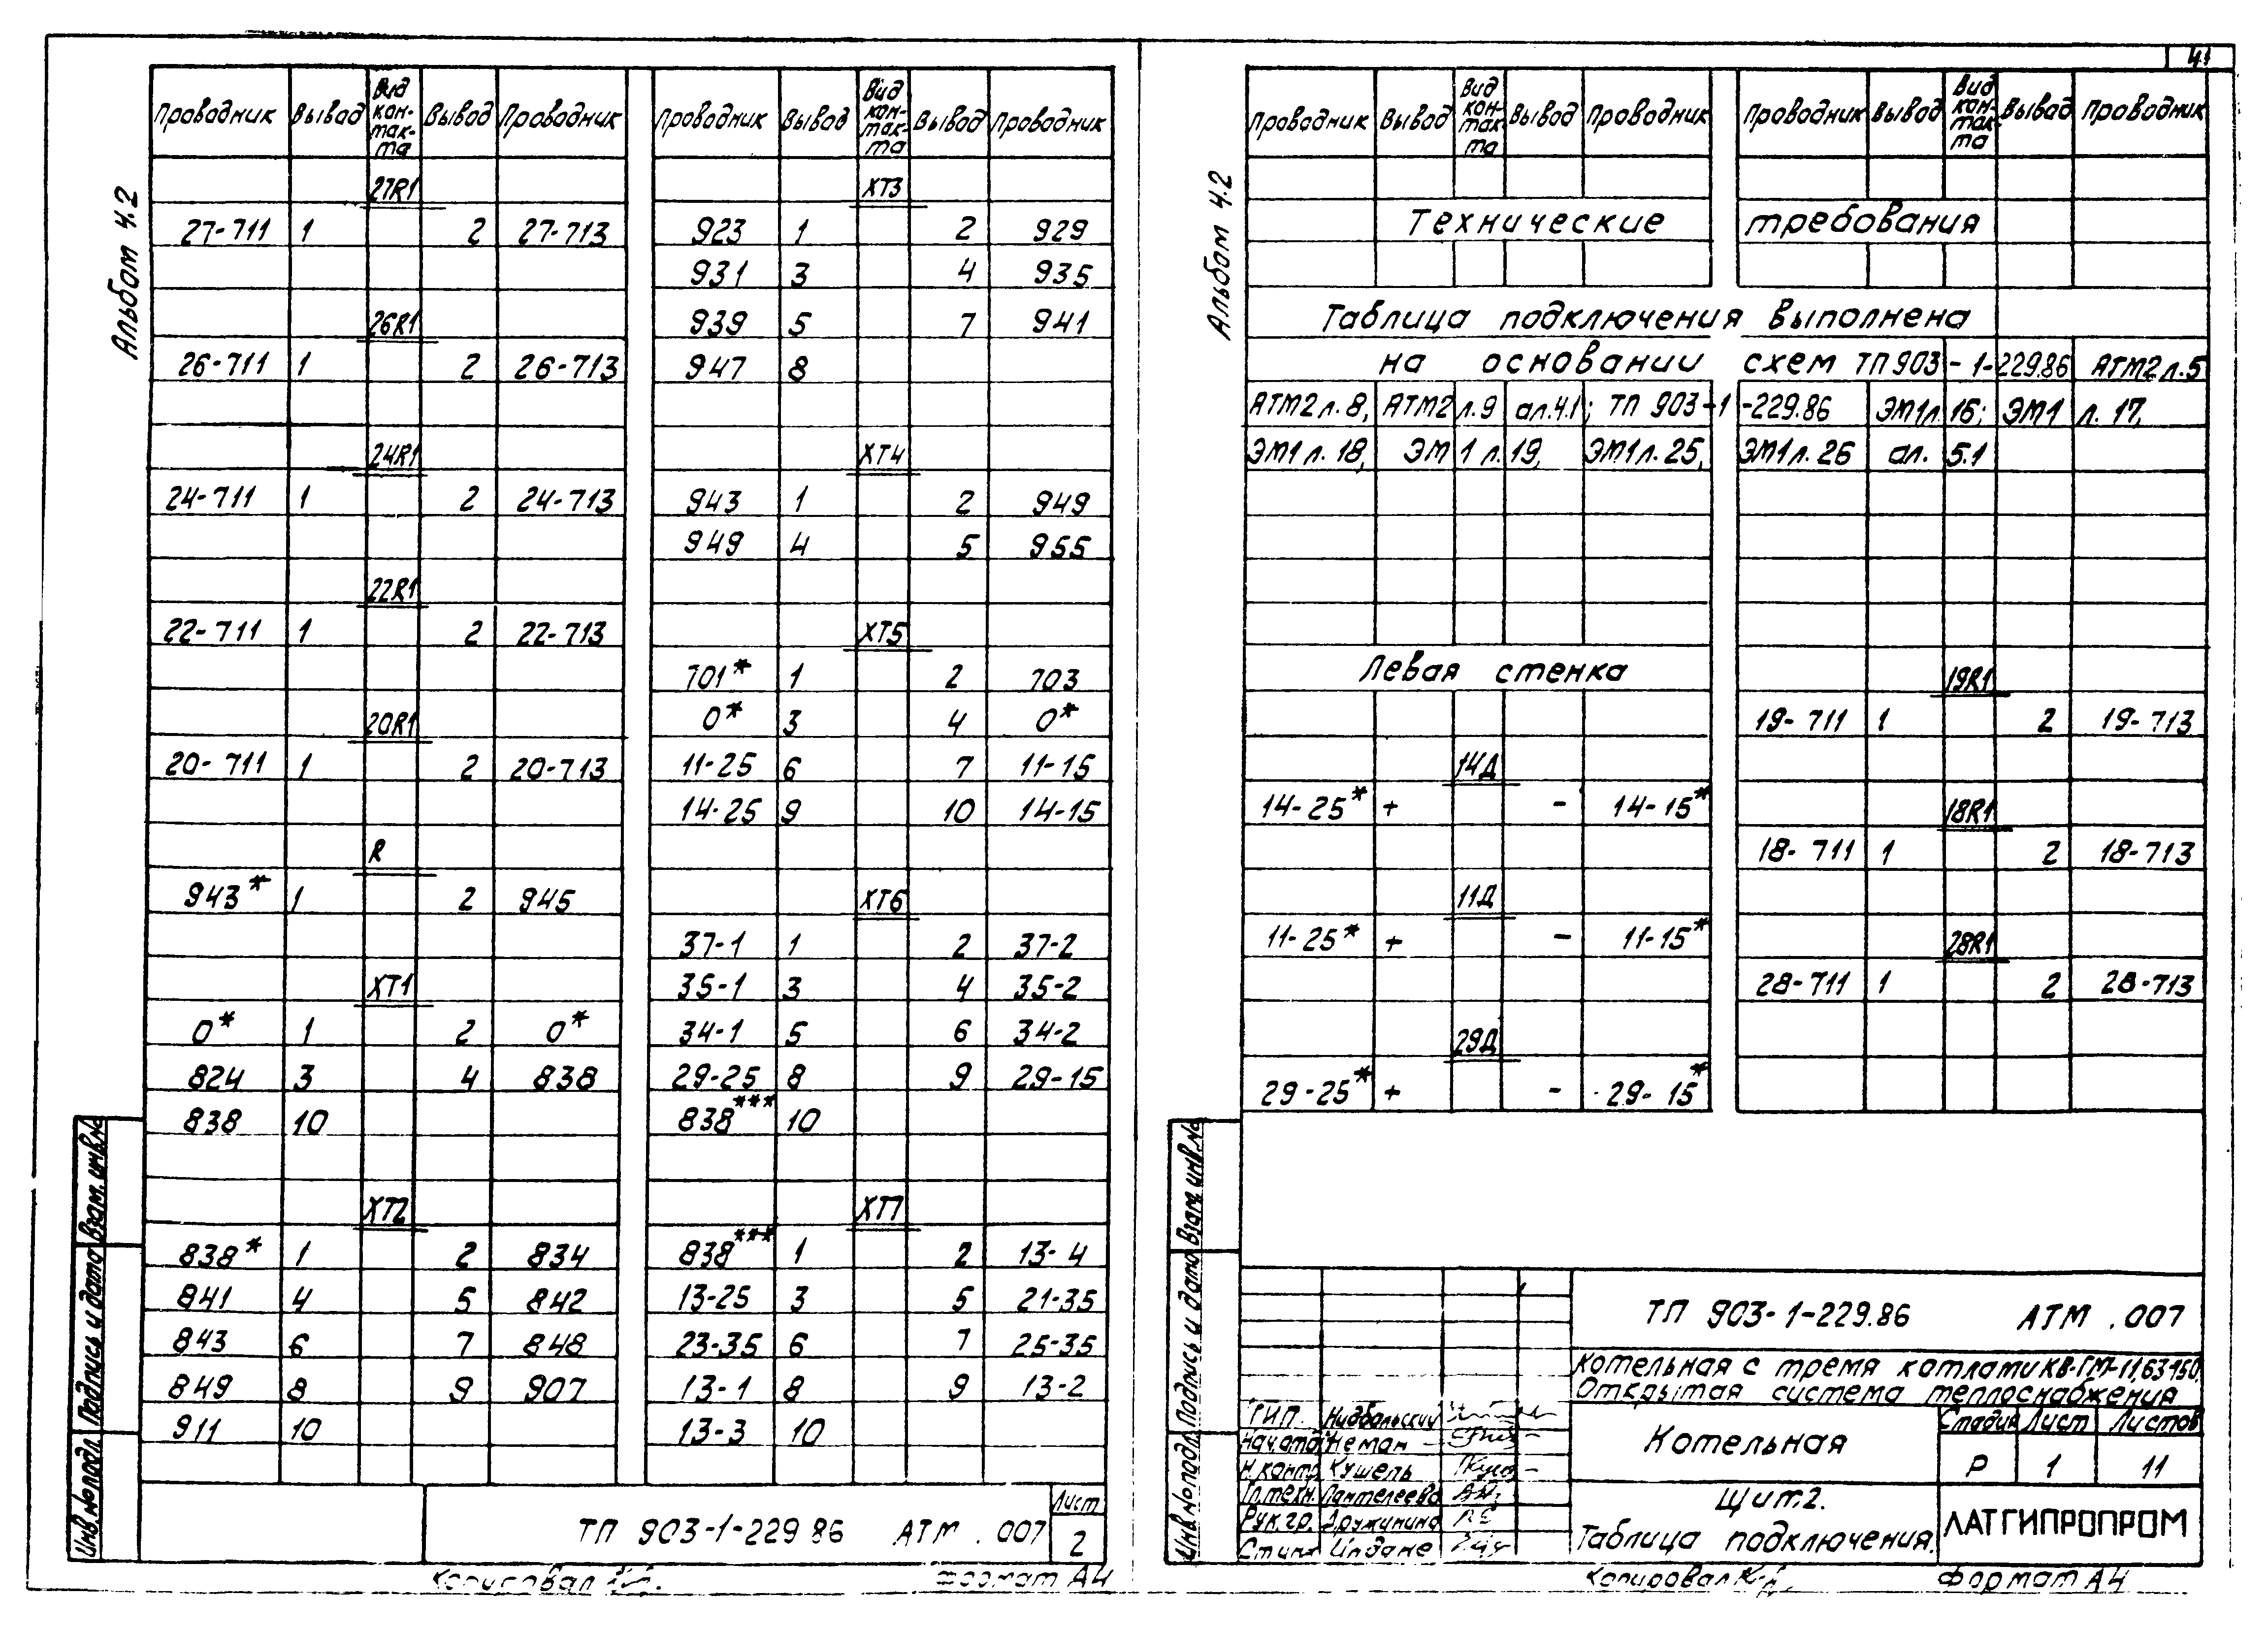 Альбом 4.2
Проводник Вывод Вид кон-так-та Вывод Проводник
27R1
27-711 1 2 27-713
26R1
26-711 1 2 26-713
24R1
24-711 1 2 24-713
22R1
22-711 1 2 22-713
20R1
20-711 1 2 20-713
R
943* 1 2 945
XT1
0* 1 2 0*
824 3 4 838
838 10
XT2
838* 1 2 834
841 4 5 842
843 6 7 848
849 8 9 907
911 10
Проводник Вывод Вид кон-так-та Вывод Проводник
XT3
923 1 2 929
931 3 4 935
939 5 7 941
947 8
XT4
943 1 2 949
949 4 5 955
XT5
701* 1 2 703
0* 3 4 0*
11-25 6 7 11-15
14-25 9 10 14-15
XT6
37-1 1 2 37-2
35-1 3 4 35-2
34-1 5 6 34-2
29-25 8 9 29-15
838*** 10
XT7
838*** 1 2 13-4
13-25 3 5 21-35
23-35 6 7 25-35
13-1 8 9 13-2
13-3 10
Инв.№ подл. Подпись и дата Взам.инв.№
ТП 903-1-229 86 АТМ .007
Лист
2
Копировал
Формат А4
41
Альбом 4.2
Проводник Вывод Вид кон-так-та Вывод Проводник
Проводник Вывод Вид кон-так-та Вывод Проводник
Технические требования
Таблица подключения выполнена
на основании схем ТП 903-1-229.86 АТМ2 л.5
АТМ2 л.8, АТМ2 л.9 ал.4.1; ТП 903-1-229.86 ЭМ1 л.16; ЭМ1 л.17,
ЭМ1 л.18, ЭМ1 л.19, ЭМ1 л.25, ЭМ1 л.26 ал. 5.1
Левая стенка
14Д
14-25* + - 14-15*
11Д
11-25* + - 11-15*
29Д
29-25* + - 29-15*
19R1
19-711 1 2 19-713
18R1
18-711 1 2 18-713
28R1
28-711 1 2 28-713
Инв.№ подл. Подпись и дата Взам.инв.№
ТП 903-1-229.86 АТМ .007
Котельная с тремя котлами КВ-ГМ-11,63-150.
Открытая система теплоснабжения
ГИП Нидбальский
Нач.отд Неман
Н.контр. Кушель
Гл.техн. Пантелеева
Рук.гр. Дружинина
Ст.инж Индане
Котельная
Стадия Лист Листов
Р 1 11
Щит 2.
Таблица подключения.
ЛАТГИПРОПРОМ
Копировал
Формат А4